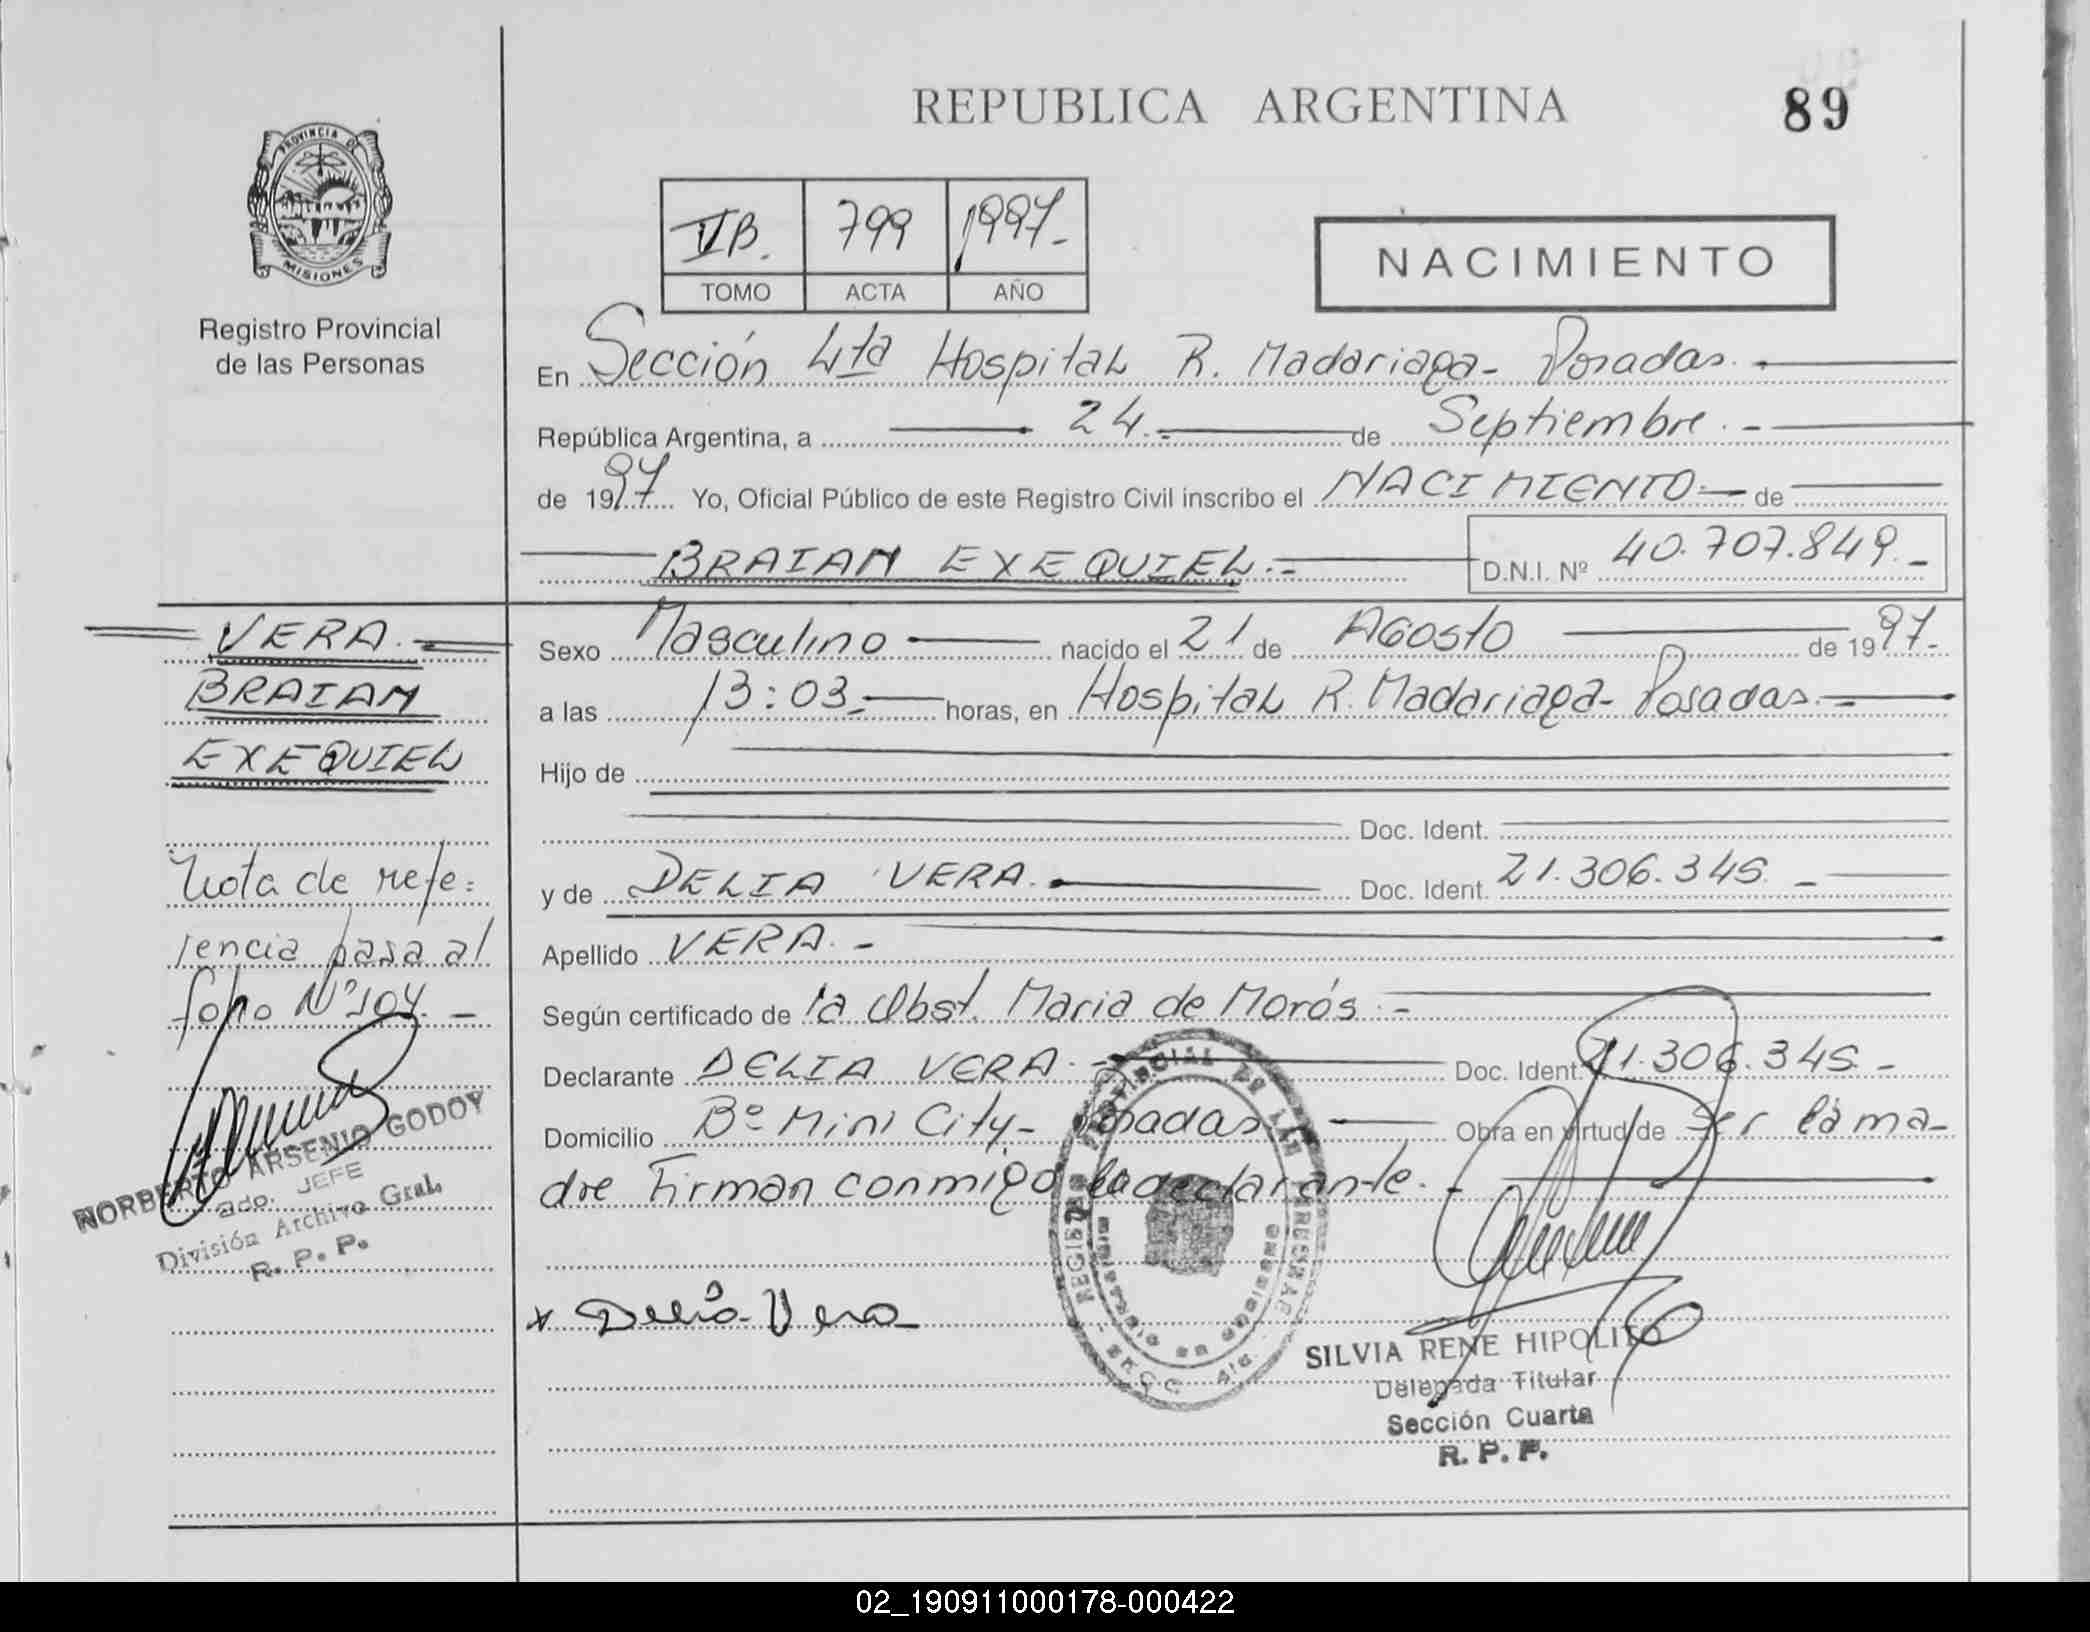 REPUBLICA ARGENTINA
89
PROVINCIA DE
MISIONES
Registro Provincial
de las Personas
IIB. 799 1997.-
TOMO ACTA AÑO
NACIMIENTO
En Sección 4ta Hospital R. Madariaga- Posadas.
República Argentina, a 24.- de Septiembre.-
de 1997 Yo, Oficial Público de este Registro Civil inscribo el NACIMIENTO de
BRAIAN EXEQUIEL.- D.N.I. Nº 40.707.849.-
VERA.
BRAIAN
EXEQUIEL
Nota de refe=
rencia pasa al
folio Nº 104.-
NORBERTO ARSENIO GODOY
2do. JEFE
División Archivo Gral.
R. P. P.
Sexo Masculino nacido el 21 de AGosto de 1997.-
a las 13:03.- horas, en Hospital R. Madariaga- Posadas.-
Hijo de
Doc. Ident.
y de DELIA VERA. Doc. Ident. 21.306.345.-
Apellido VERA.-
Según certificado de la Obst. Maria de Morós.-
Declarante DELIA VERA.- Doc. Ident. 21.306.345.-
Domicilio Bº Mini City- Posadas. Obra en virtud de Ser la ma-
dre Firman conmigo la declarante.-
REGISTRO PROVINCIAL DE LAS PERSONAS
x Delia Vera
SILVIA RENE HIPOLITO
Delegada Titular
Sección Cuarta
R. P. P.
02_190911000178-000422